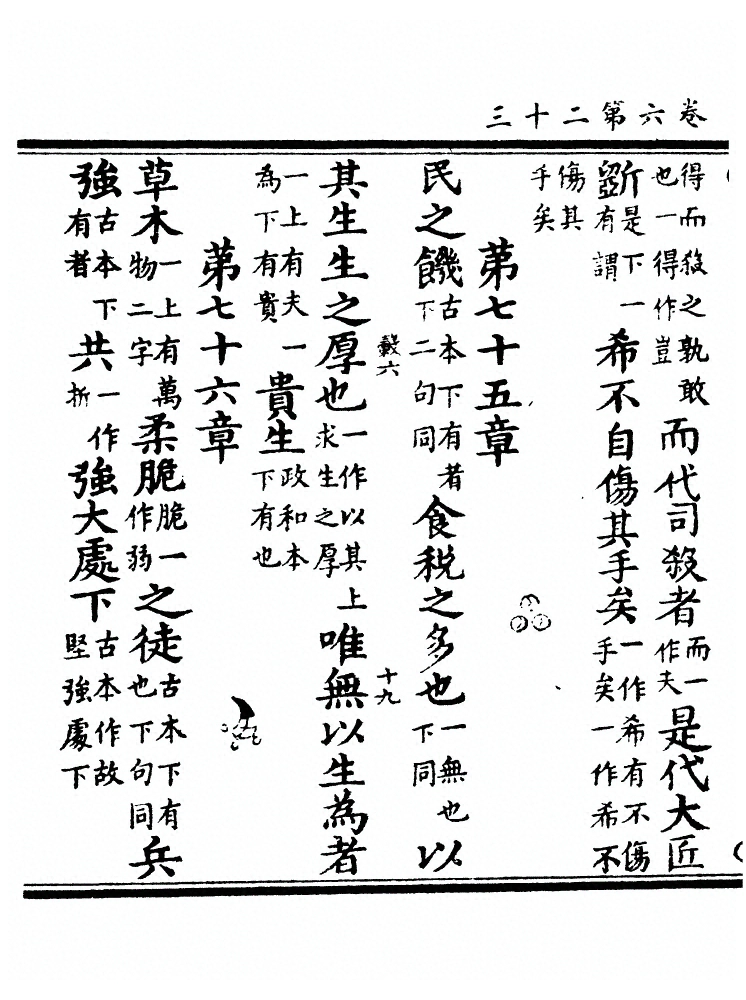 卷六第二十三
得而殺之孰敢也一得作豈而代司殺者而一作夫是代大匠
斵是下一有謂希不自傷其手矣一作希有不傷手矣一作希不
傷其手矣
第七十五章
民之饑古本下有者下二句同食税之多也一無也下同以
六
十九
其生生之厚也一作以其上求生之厚唯無以生為者
一上有夫一為下有貴貴生政和本下有也
第七十六章
草木一上有萬物二字柔脆脆一作弱之徒古本下有也下句同兵
強古本下有者共一作折強大處下古本作故堅強處下